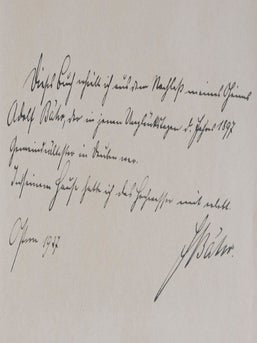 Dieses Buch erhielt ich aus dem Nachlaß meines Oheims
Adolf Bähr, der in jenen Unglückstagen d. Jahres 1897
Gemeindeältester in Stuben war.
In seinem Hause hatte ich das Hochwasser mit erlebt.
Ostern 1937.
Bähr.